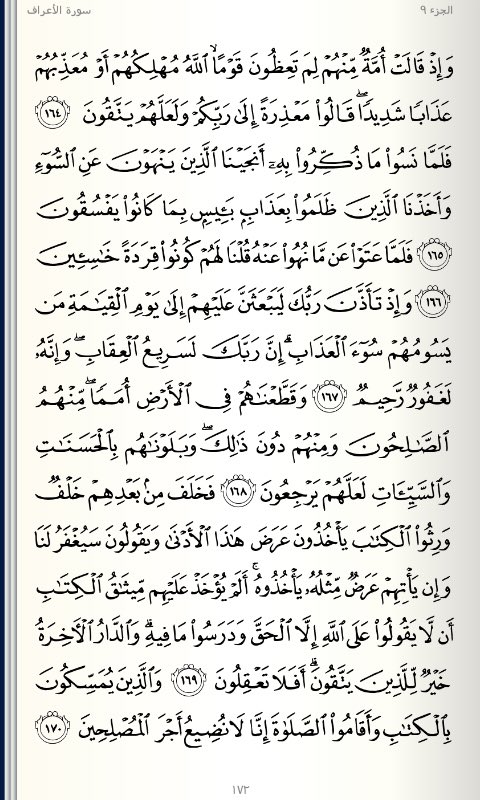 الجزء ٩
سورة الأعراف
وَإِذْ قَالَتْ أُمَّةٌ مِّنْهُمْ لِمَ تَعِظُونَ قَوْمًا ۙ اللَّهُ مُهْلِكُهُمْ أَوْ مُعَذِّبُهُمْ
عَذَابًا شَدِيدًا ۖ قَالُوا۟ مَعْذِرَةً إِلَىٰ رَبِّكُمْ وَلَعَلَّهُمْ يَتَّقُونَ ١٦٤
فَلَمَّا نَسُوا۟ مَا ذُكِّرُوا۟ بِهِۦٓ أَنجَيْنَا ٱلَّذِينَ يَنْهَوْنَ عَنِ ٱلسُّوٓءِ
وَأَخَذْنَا ٱلَّذِينَ ظَلَمُوا۟ بِعَذَابٍۭ بَـِٔيسٍۭ بِمَا كَانُوا۟ يَفْسُقُونَ
١٦٥ فَلَمَّا عَتَوْا۟ عَن مَّا نُهُوا۟ عَنْهُ قُلْنَا لَهُمْ كُونُوا۟ قِرَدَةً خَـٰسِـِٔينَ
١٦٦ وَإِذْ تَأَذَّنَ رَبُّكَ لَيَبْعَثَنَّ عَلَيْهِمْ إِلَىٰ يَوْمِ ٱلْقِيَـٰمَةِ مَن
يَسُومُهُمْ سُوٓءَ ٱلْعَذَابِ ۗ إِنَّ رَبَّكَ لَسَرِيعُ ٱلْعِقَابِ ۖ وَإِنَّهُۥ
لَغَفُورٌ رَّحِيمٌ ١٦٧ وَقَطَّعْنَـٰهُمْ فِى ٱلْأَرْضِ أُمَمًا ۖ مِّنْهُمُ
ٱلصَّـٰلِحُونَ وَمِنْهُمْ دُونَ ذَٰلِكَ ۖ وَبَلَوْنَـٰهُم بِٱلْحَسَنَـٰتِ
وَٱلسَّيِّـَٔاتِ لَعَلَّهُمْ يَرْجِعُونَ ١٦٨ فَخَلَفَ مِنۢ بَعْدِهِمْ خَلْفٌ
وَرِثُوا۟ ٱلْكِتَـٰبَ يَأْخُذُونَ عَرَضَ هَـٰذَا ٱلْأَدْنَىٰ وَيَقُولُونَ سَيُغْفَرُ لَنَا
وَإِن يَأْتِهِمْ عَرَضٌ مِّثْلُهُۥ يَأْخُذُوهُ ۚ أَلَمْ يُؤْخَذْ عَلَيْهِم مِّيثَـٰقُ ٱلْكِتَـٰبِ
أَن لَّا يَقُولُوا۟ عَلَى ٱللَّهِ إِلَّا ٱلْحَقَّ وَدَرَسُوا۟ مَا فِيهِ ۗ وَٱلدَّارُ ٱلْـَٔاخِرَةُ
خَيْرٌ لِّلَّذِينَ يَتَّقُونَ ۗ أَفَلَا تَعْقِلُونَ ١٦٩ وَٱلَّذِينَ يُمَسِّكُونَ
بِٱلْكِتَـٰبِ وَأَقَامُوا۟ ٱلصَّلَوٰةَ إِنَّا لَا نُضِيعُ أَجْرَ ٱلْمُصْلِحِينَ ١٧٠
١٧٢